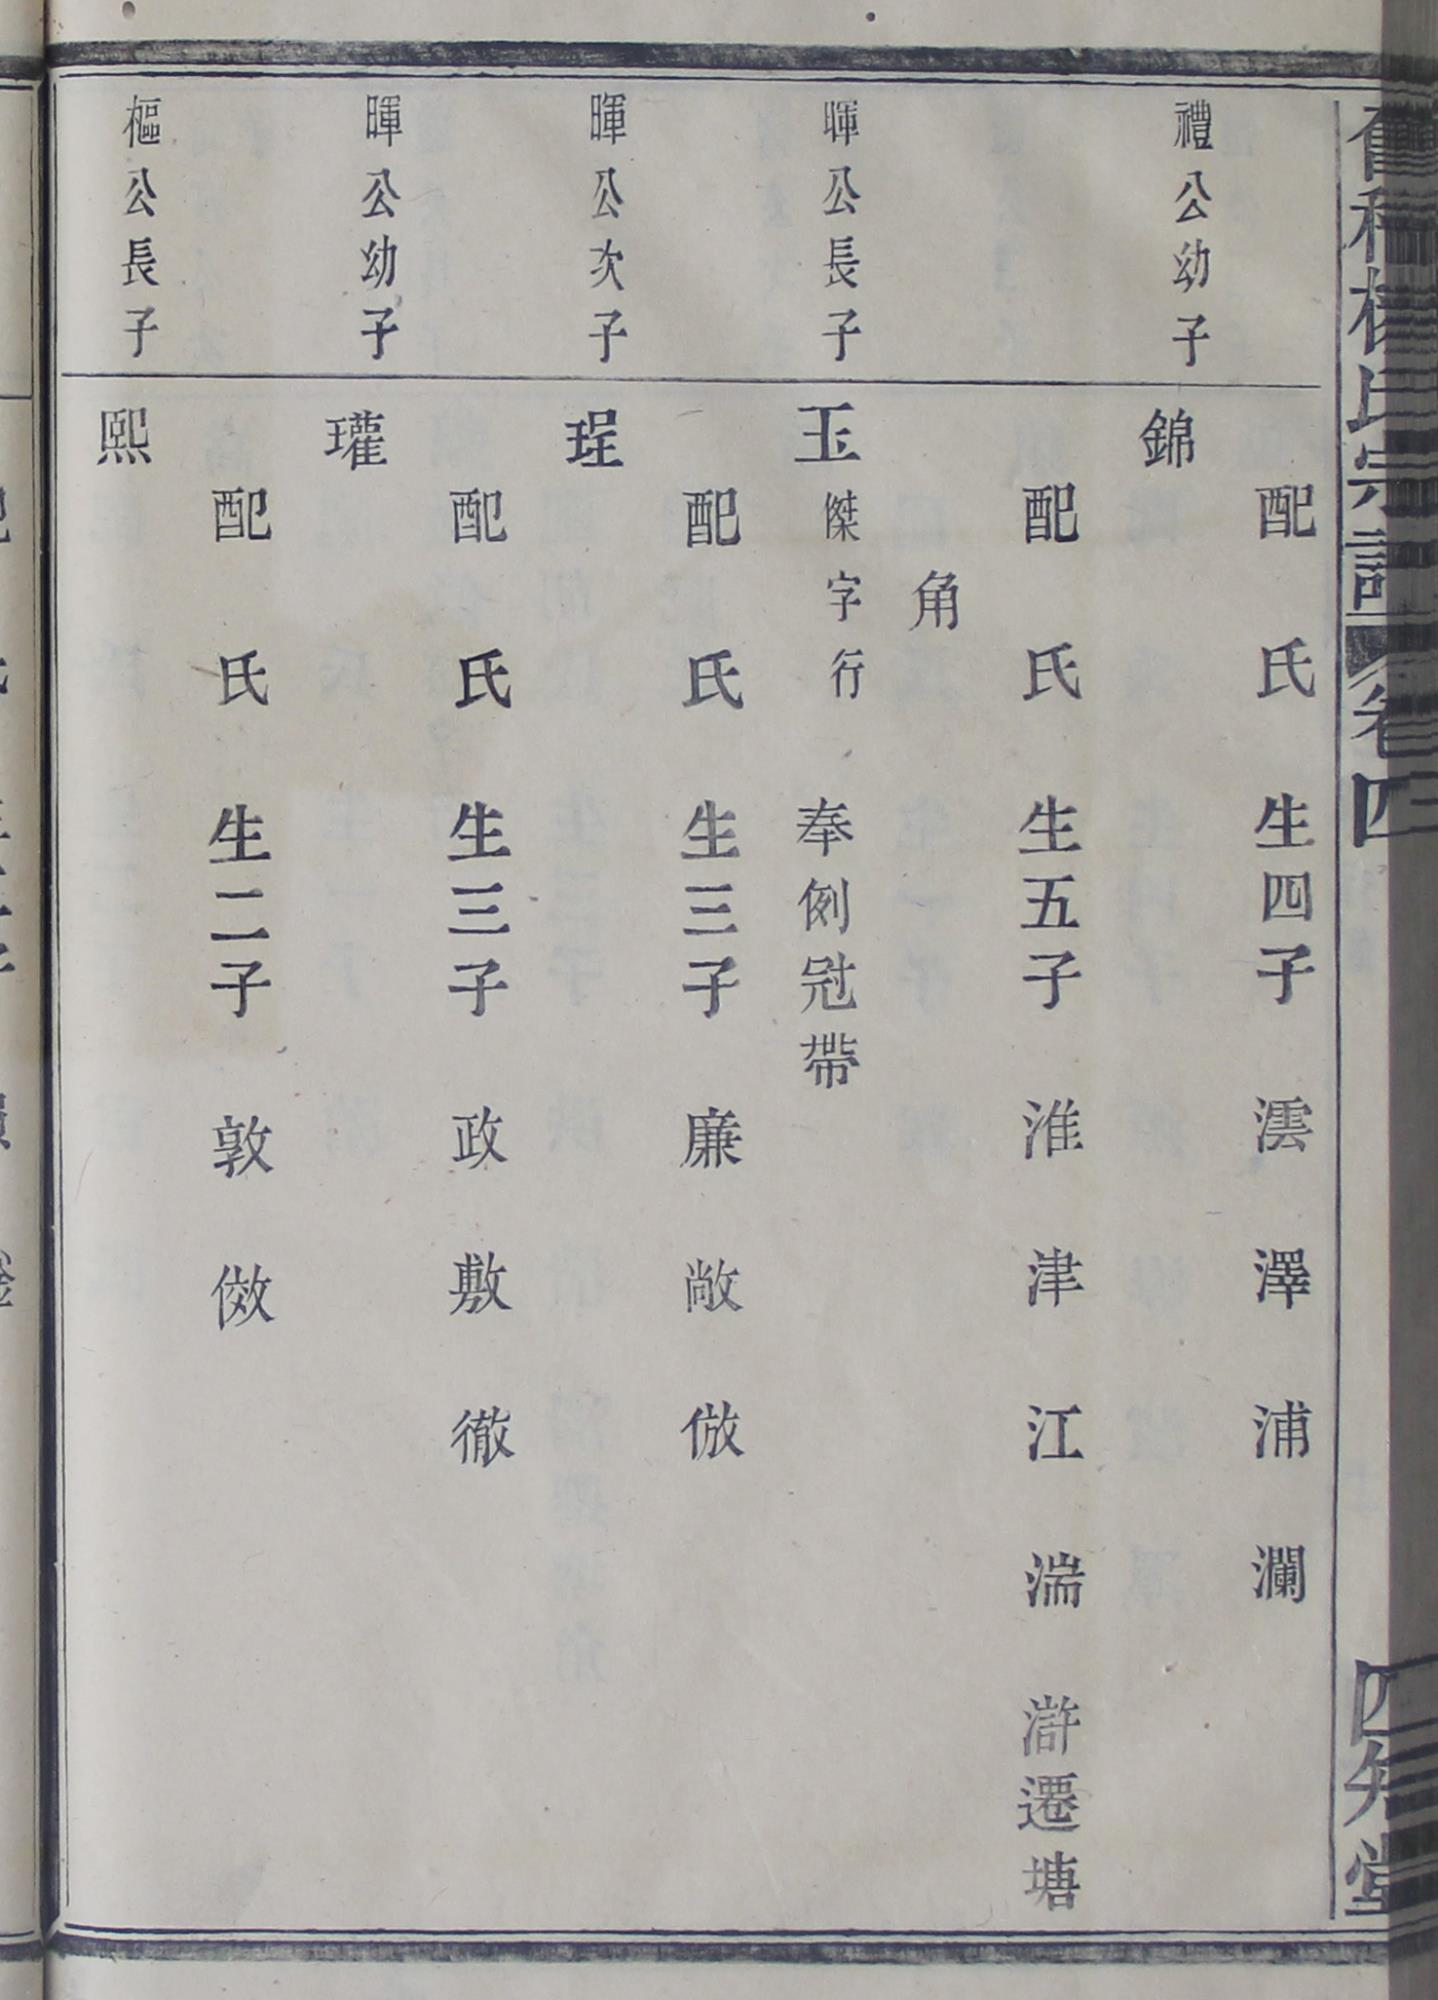 氏宗譜 卷四 四知堂
配 氏 生四子 澐 澤 浦 瀾
禮公幼子 錦
配 氏 生五子 淮 津 江 湍 滸遷塘
角
暉公長子 玉 傑字行 奉例冠帶
配 氏 生三子 廉 敞 倣
暉公次子 珵
配 氏 生三子 政 敷 徹
暉公幼子 瓘
配 氏 生二子 敦 傚
樞公長子 熙